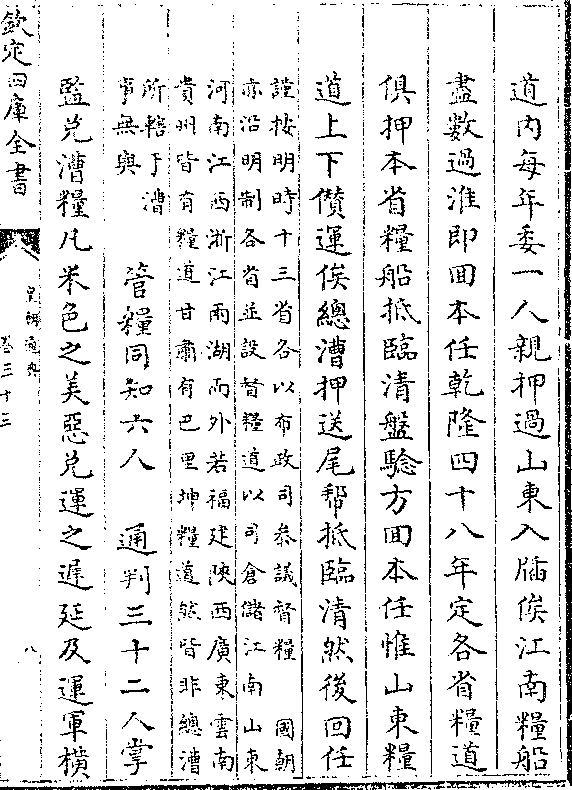 道内每年委一人親押過山東入牐俟江南糧船
盡數過淮即回本任乾隆四十八年定各省糧道
俱押本省糧船抵臨清盤驗方回本任惟山東糧
道上下儹運俟總漕押送尾幫抵臨清然後回任
謹按明時十三省各以布政司叅議督糧　國朝
亦沿明制各省並設督糧道以司倉儲江南山東
河南江西浙江兩湖而外若福建陜西廣東雲南
貴州皆有糧道甘肅有巴里坤糧道然皆非總漕
所轄于漕
事無與
管糧同知六人　通判三十二人掌
監兌漕糧凡米色之美惡兌運之遲延及運軍橫
欽定四庫全書
皇朝通典
卷三十三
八